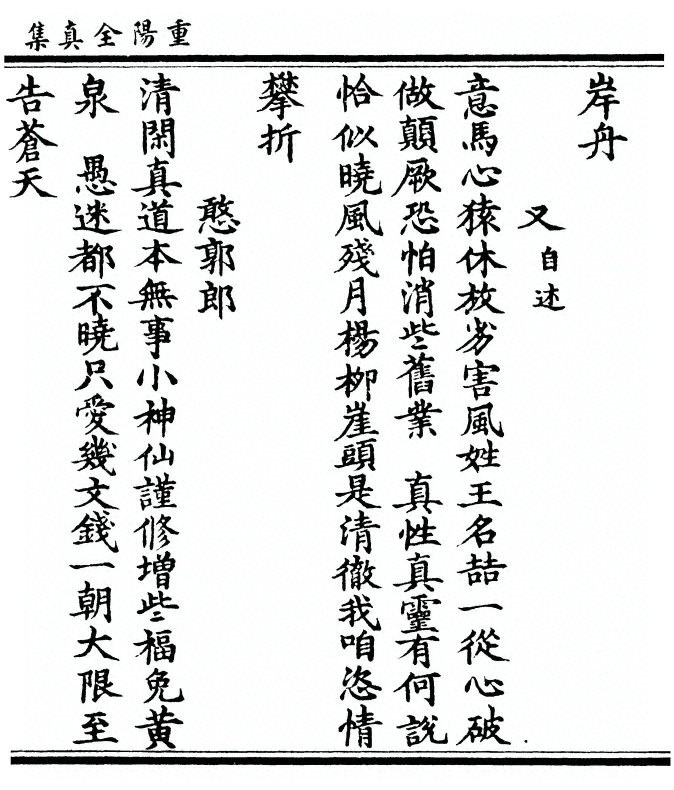 重陽全真集
岸舟
又 自述
意馬心猿休放劣害風姓王名喆一從心破
做顛厥恐怕消些舊業 真性真靈有何說
恰似曉風殘月楊柳崖頭是清徹我咱恣情
攀折
憨郭郎
清閑真道本無事小神仙謹修增些福免黃
泉 愚迷都不曉只愛幾文錢一朝大限至
告蒼天